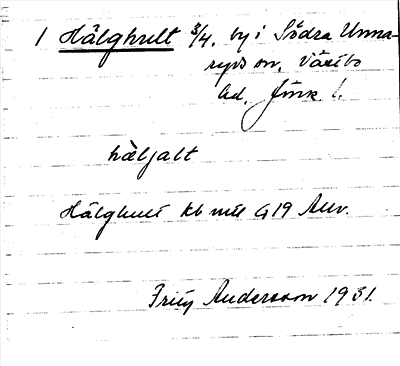 1 Hälghult 3/4. by i Södra Unna-
ryds sn. Västbo
hd. Jönk. l.
hàljalt
Hälghult kb mtl G19 Allv.
Andersson 1931.